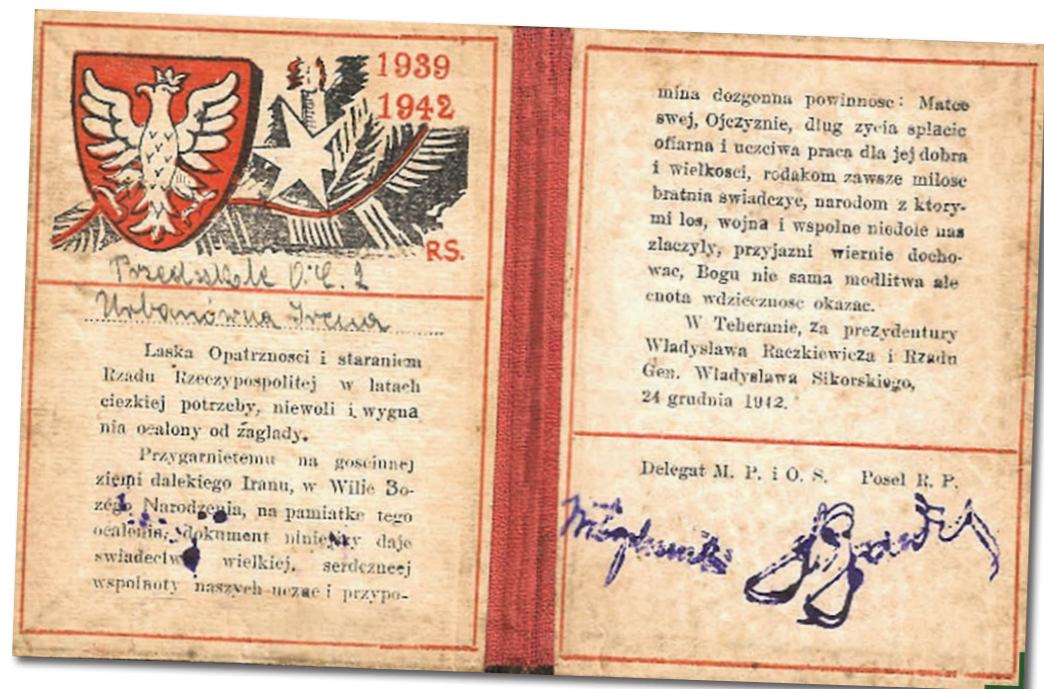 1939
1942
RS.
Przedszkole
Urbanówna Irena
Laska Opatrznosci i staraniem
Rzadu Rzeczypospolitej w latach
ciezkiej potrzeby, niewoli i wygna
nia ocalony od zaglady.
Przygarnietemu na goscinnej
ziemi dalekiego Iranu, w Wilie Bo-
zégo Narodzenia, na pamiatke tego
ocalenia, dokument niniejszy daje
swiadectwo wielkiej, serdeczneej
wspolnoty naszych uczuc i przypo-
mina dozgonna powinnosc: Matce
swej, Ojczyznie, dlug zycia splacic
ofiarna i uczciwa praca dla jej dobra
i wielkosci, rodakom zawsze milosc
bratnia swiadczyc, narodom z ktory-
mi los, wojna i wspolne niedole nas
zlaczyly, przyjazni wiernie docho-
wac, Bogu nie sama modlitwa ale
cnota wdziecznosc okazac.
W Teheranie, za prezydentury
Wladyslawa Raczkiewicza i Rzadu
Gen. Wladyslawa Sikorskiego,
24 grudnia 1942.
Delegat M. P. i O. S. Posel R. P.